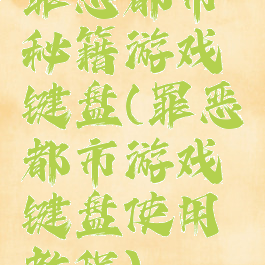 罪恶都市
秘籍游戏
键盘(罪恶
都市游戏
键盘使用
教程)